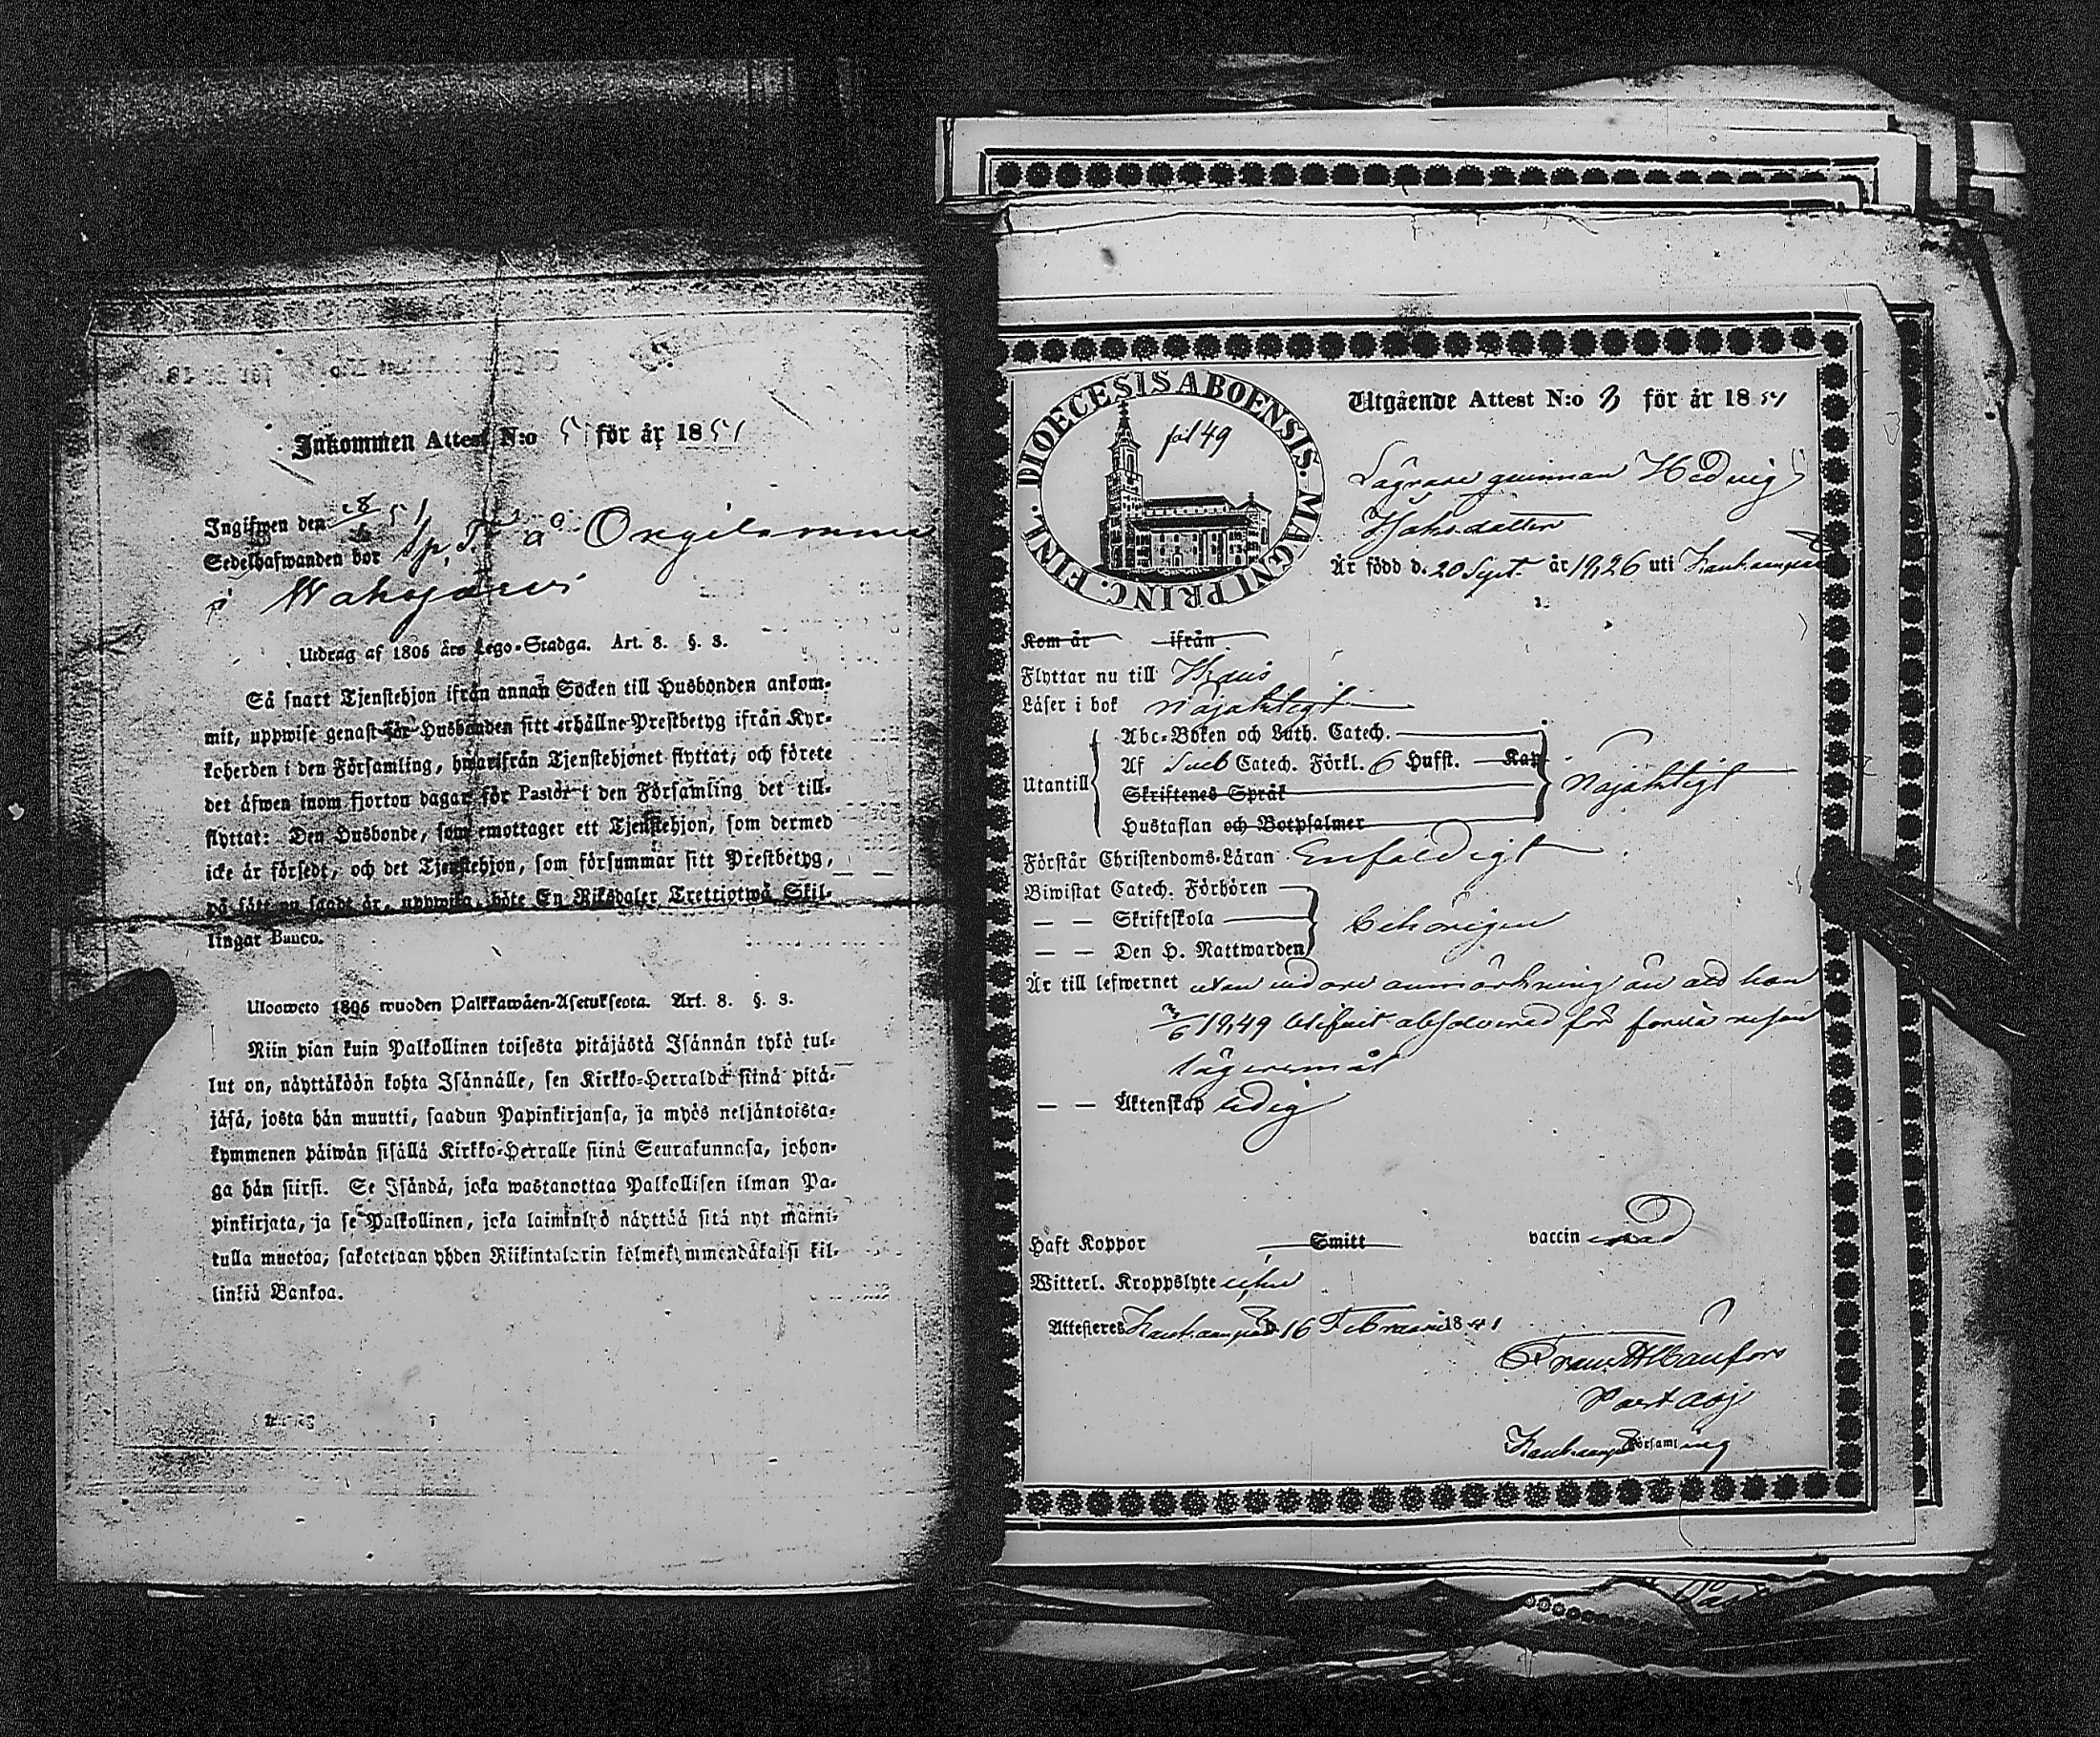 Inkommen Attest N:o 5 för år 1851
Ingifwen den 28/5 51
Sedelhafwanden bor Sp. T. å Ongelamme
i Wahojärwi
Utdrag af 1805 års Lego-Stadga. Art. 8. §. 3.
Så snart Tjenstehjon ifrån annan Socken till Husbonden ankom-
mit, uppwise genast för Husbonden sitt erhållne Prestbetyg ifrån Kyr-
koherden i den Församling, hwarifrån Tjenstehjonet flyttat; och förete
det äfwen inom fjorton dagar för Pastor i den Församling det till-
flyttat: Den Husbonde, som emottager ett Tjenstehjon, som dermed
icke är försedt, och det Tjenstehjon, som försummar sitt Prestbetyg,
på sätt nu sagdt är, uppwisa, böte En Riksdaler Trettiotwå Skil-
lingar Banco.
Ulosweto 1805 wuoden Palkkawäen-Asetuksesta. Art. 8. §. 3.
Niin pian kuin Palkollinen toisesta pitäjästä Isännän tykö tul-
lut on, näyttäköön kohta Isännälle, sen Kirkko-Herralda siinä pitä-
jäsä, josta hän muutti, saadun Papinkirjansa, ja myös neljäntoista-
kymmenen päiwän sisällä Kirkko-Herralle siinä Seurakunnasa, johon-
ga hän siirsi. Se Isändä, joka wastanottaa Palkollisen ilman Pa-
pinkirjata, ja se Palkollinen, joka laiminlyö näyttää sitä nyt mäini-
tulla muotoa; sakotetaan yhden Riikintalarin kolmekymmendäkaksi kil-
linkiä Bankoa.
DIOECESIS ABOENSIS. MAGNI PRINC. FINL.
fol 49
Utgående Attest N:o 3 för år 1851
Lägrade qwinnan Hedwig
Isaksdotter
Är född d. 20 Sept. år 1826 uti Kauhajoki
Kom år ifrån
Flyttar nu till Kräus
Läser i bok nöjaktigt
Abc-Boken och Luth. Catech.
Utantill Af Sveb Catech. Förkl. 6 Hufst. Kap nöjaktigt
Skriftenes Språk
Hustaflan och Botpsalmer
Förstår Christendoms-Läran Enfaldigt
Biwistat Catech. Förhören
— — Skriftskola behörigen
— — Den H. Nattwarden
Är till lefwernet utan widare anmärkning än att hon
/6 1849 blifwit absolverad för första resan
lägersmål
— — Äktenskap ledig
Haft Koppor Smitt vaccinerad
Witterl. Kroppslyte utan
Attesteres Kauhajoki d. 16 Februarii 1851
Past adj
Församling